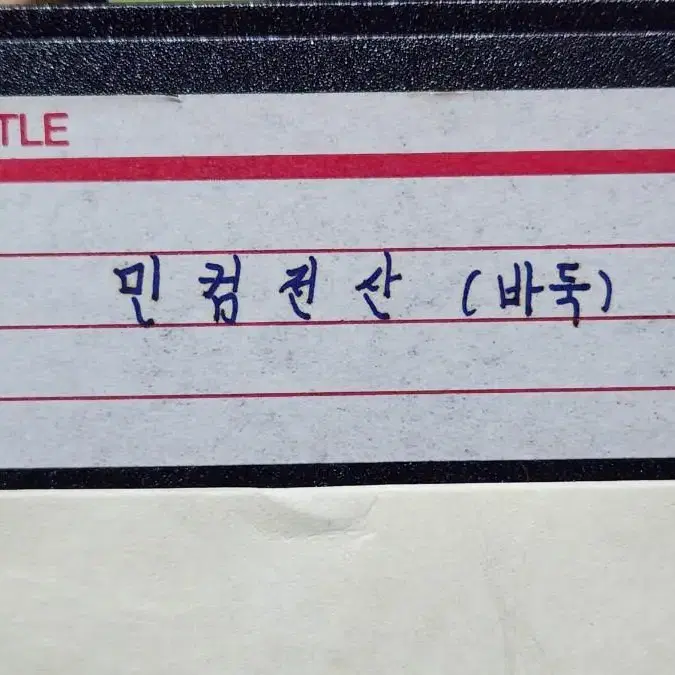 TLE
민컴전산 (바둑)